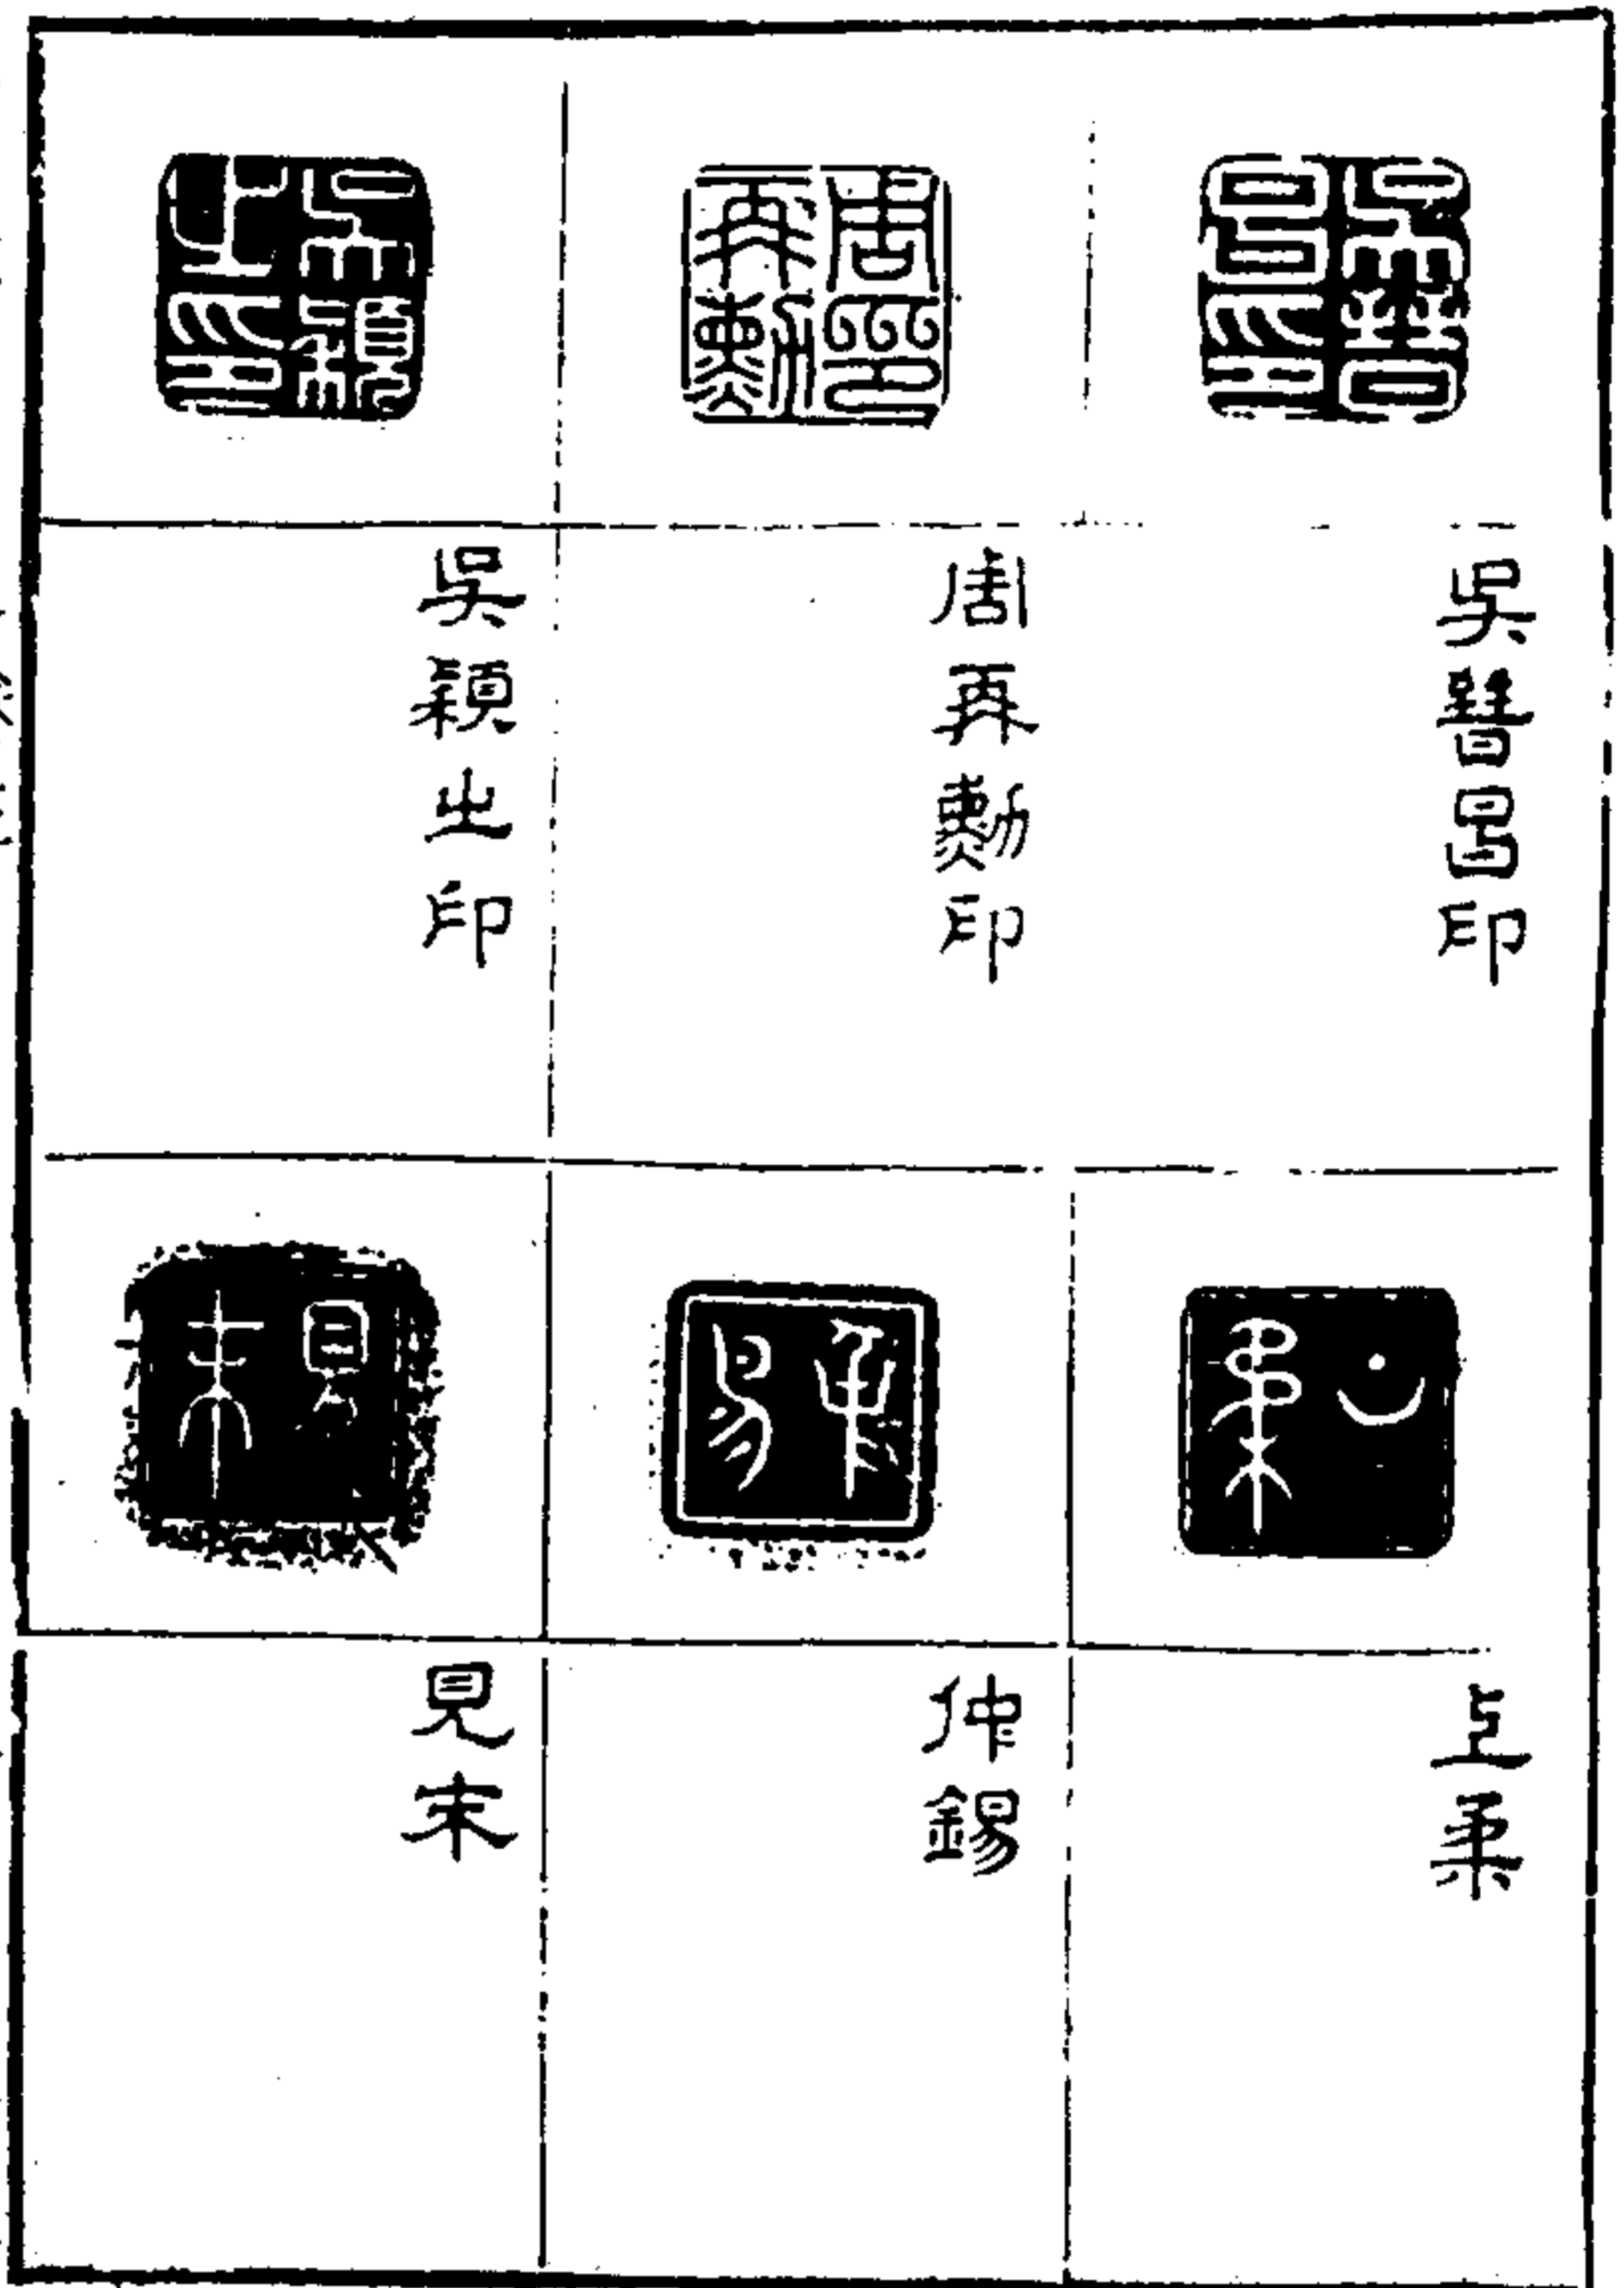 吳昌印
周再勳印
吳穎之印
上柔
仲錫
見